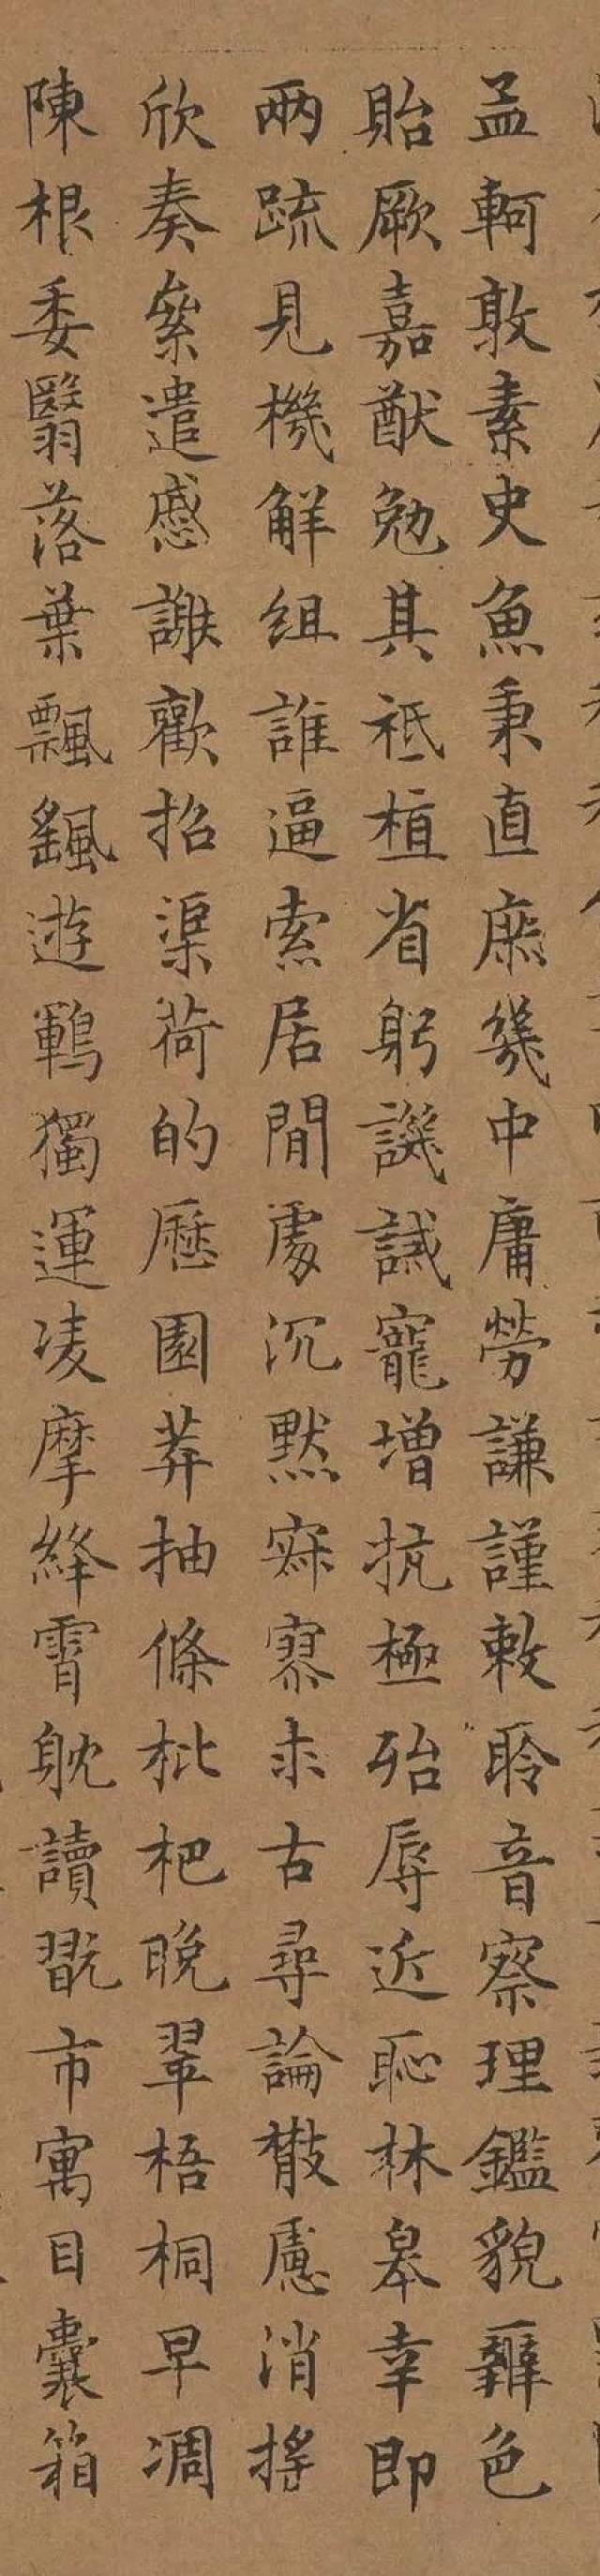 孟軻敦素史魚秉直庶幾中庸勞謙謹敕聆音察理鑑貌辨色
貽厥嘉猷勉其祗植省躬譏誡寵增抗極殆辱近恥林皋幸即
兩疏見機解組誰逼索居閒處沉默寂寥求古尋論散慮消搖
欣奏累遣慼謝歡招渠荷的歷園莽抽條枇杷晚翠梧桐早凋
陳根委翳落葉飄颻遊鵾獨運凌摩絳霄耽讀翫市寓目囊箱